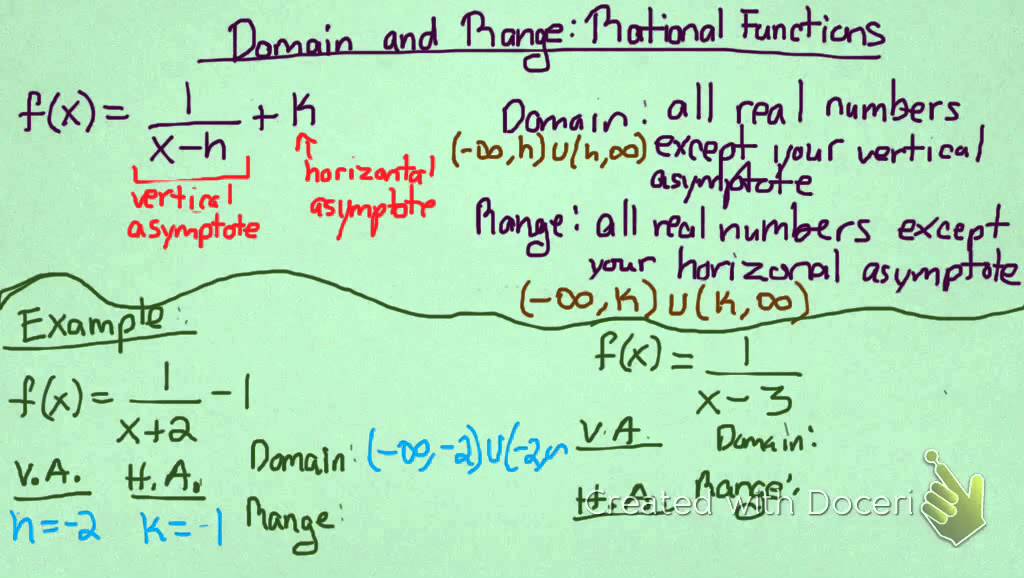 Domain and Range: Rational Functions
f(x) = 1/(x-h) + k
vertical asymptote
horizontal asymptote
Domain: all real numbers
(-∞, h) ∪ (h, ∞) except your vertical
asymptote
Range: all real numbers except
your horizonal asymptote
(-∞, k) ∪ (k, ∞)
Example:
f(x) = 1/(x+2) - 1
V.A. H.A.
h = -2 k = -1
Domain: (-∞, -2) ∪ (-2,
Range:
f(x) = 1/(x-3)
V.A.
H.A.
Domain:
Range:
Created with Doceri